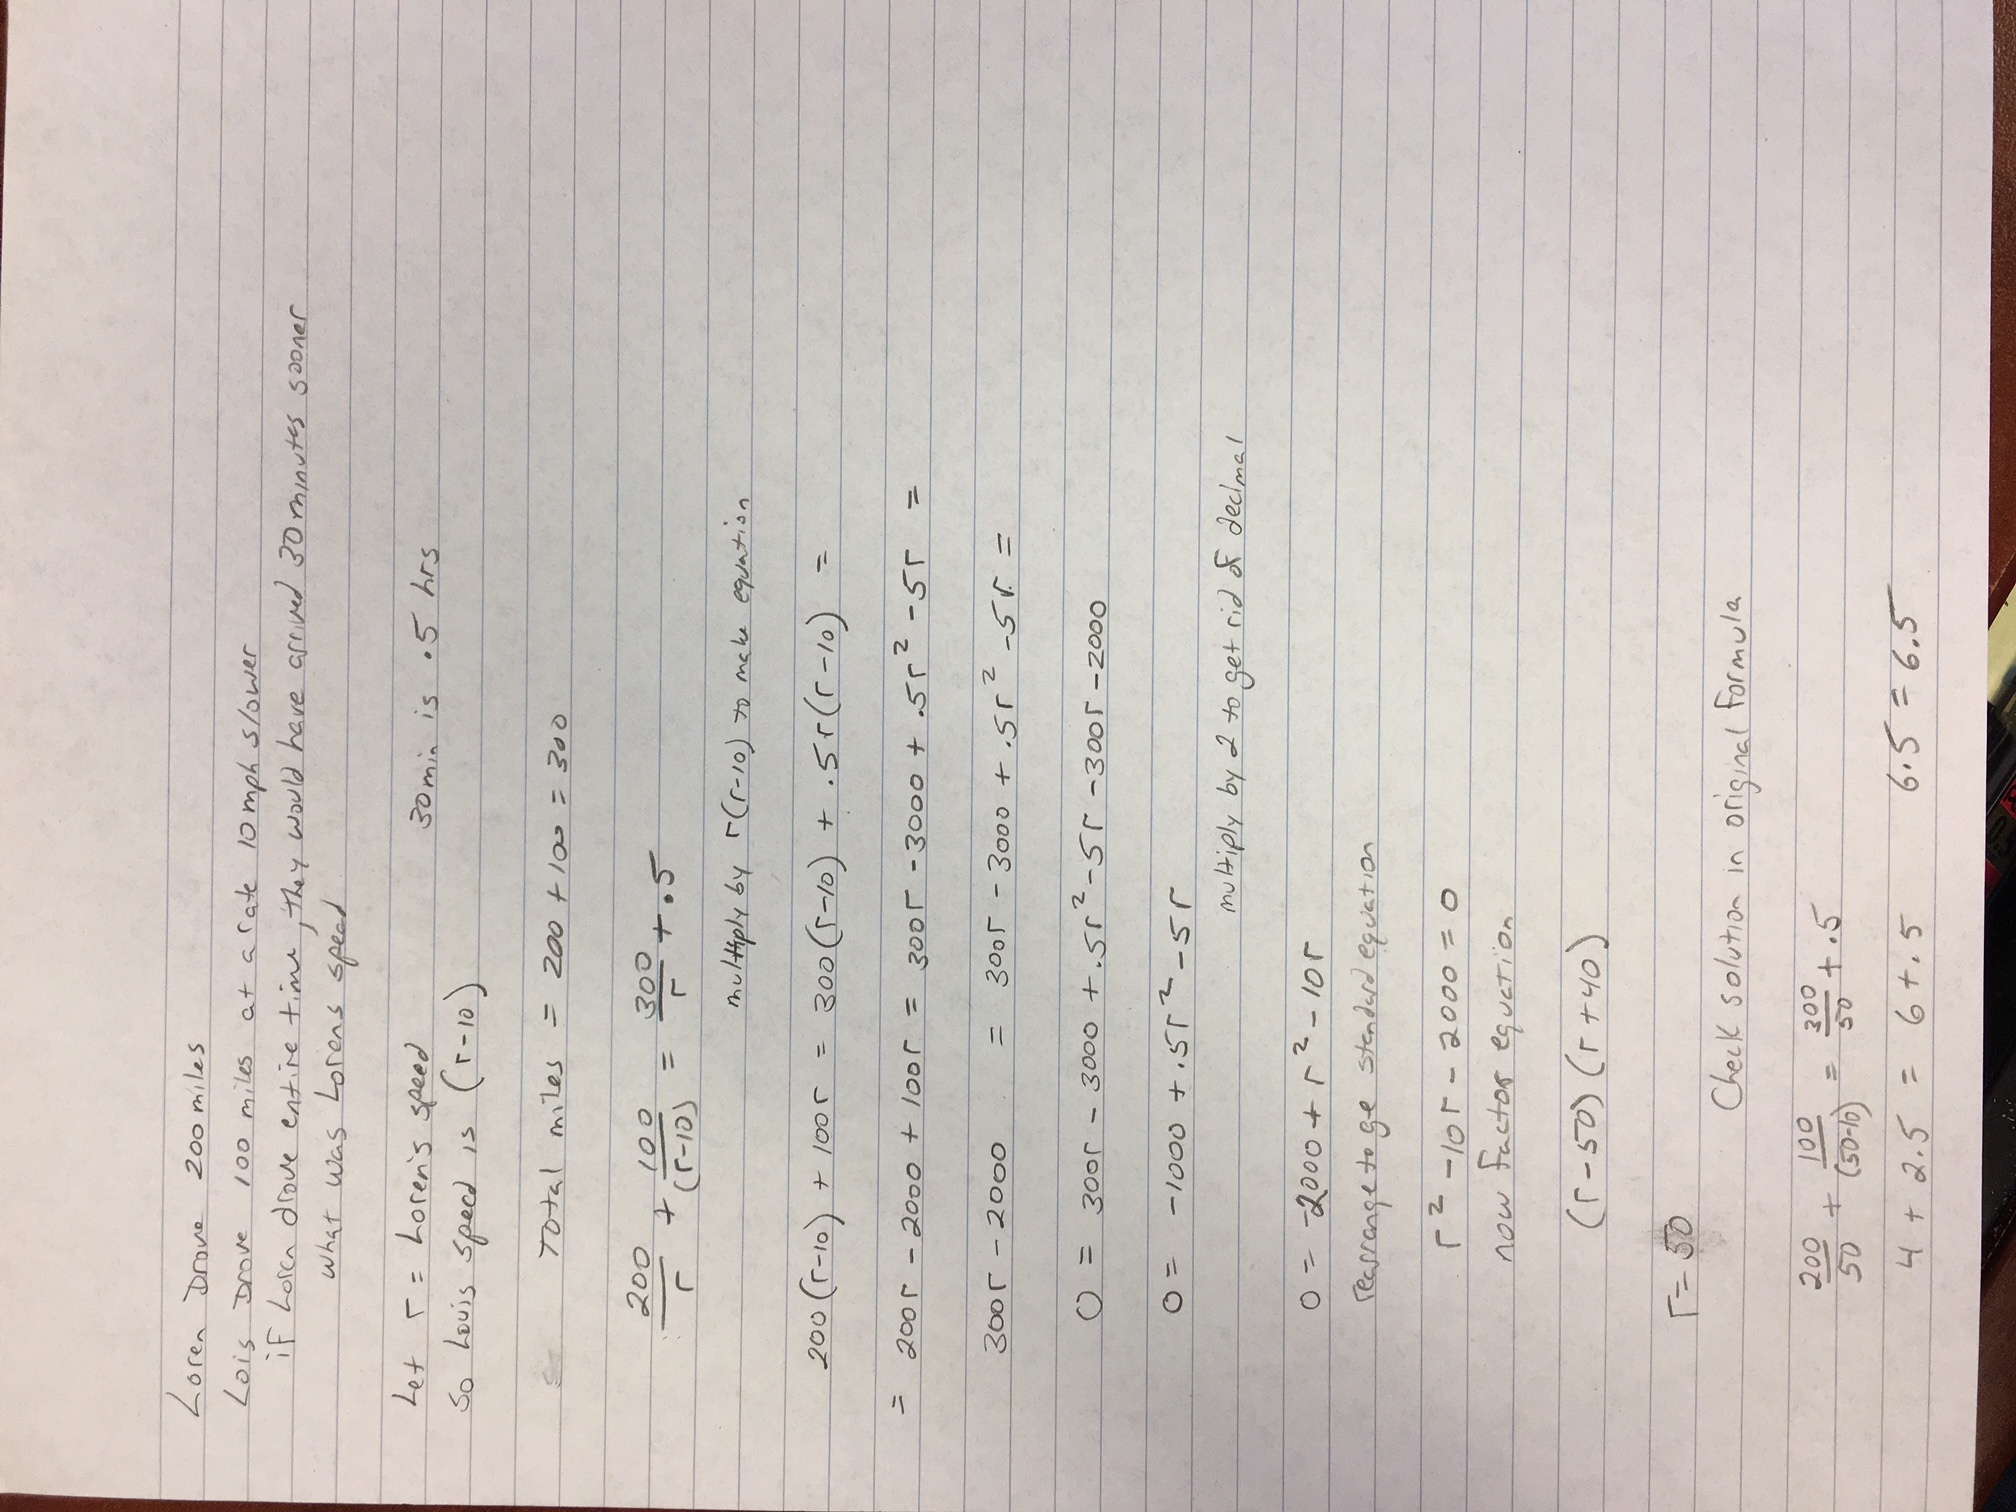 Loren Drove 200 miles
Lois Drove 100 miles at a rate 10 mph slower
if Loren drove entire time, they would have arrived 30 minutes sooner
what was Lorens speed
Let r = Loren's speed 30 min is .5 hrs
So Louis speed is (r-10)
Total miles = 200 + 100 = 300
200/r + 100/(r-10) = 300/r + .5
multiply by r(r-10) to make equation
200(r-10) + 100r = 300(r-10) + .5r(r-10) =
= 200r - 2000 + 100r = 300r - 3000 + .5r² - 5r =
300r - 2000 = 300r - 3000 + .5r² - 5r =
0 = 300r - 3000 + .5r² - 5r - 300r - 2000
0 = -1000 + .5r² - 5r
multiply by 2 to get rid of decimal
0 = -2000 + r² - 10r
rearrange to ge standard equation
r² - 10r - 2000 = 0
now factor equation
(r - 50)(r + 40)
r = 50
Check solution in original formula
200/50 + 100/(50-10) = 300/50 + .5
4 + 2.5 = 6 + .5 6.5 = 6.5